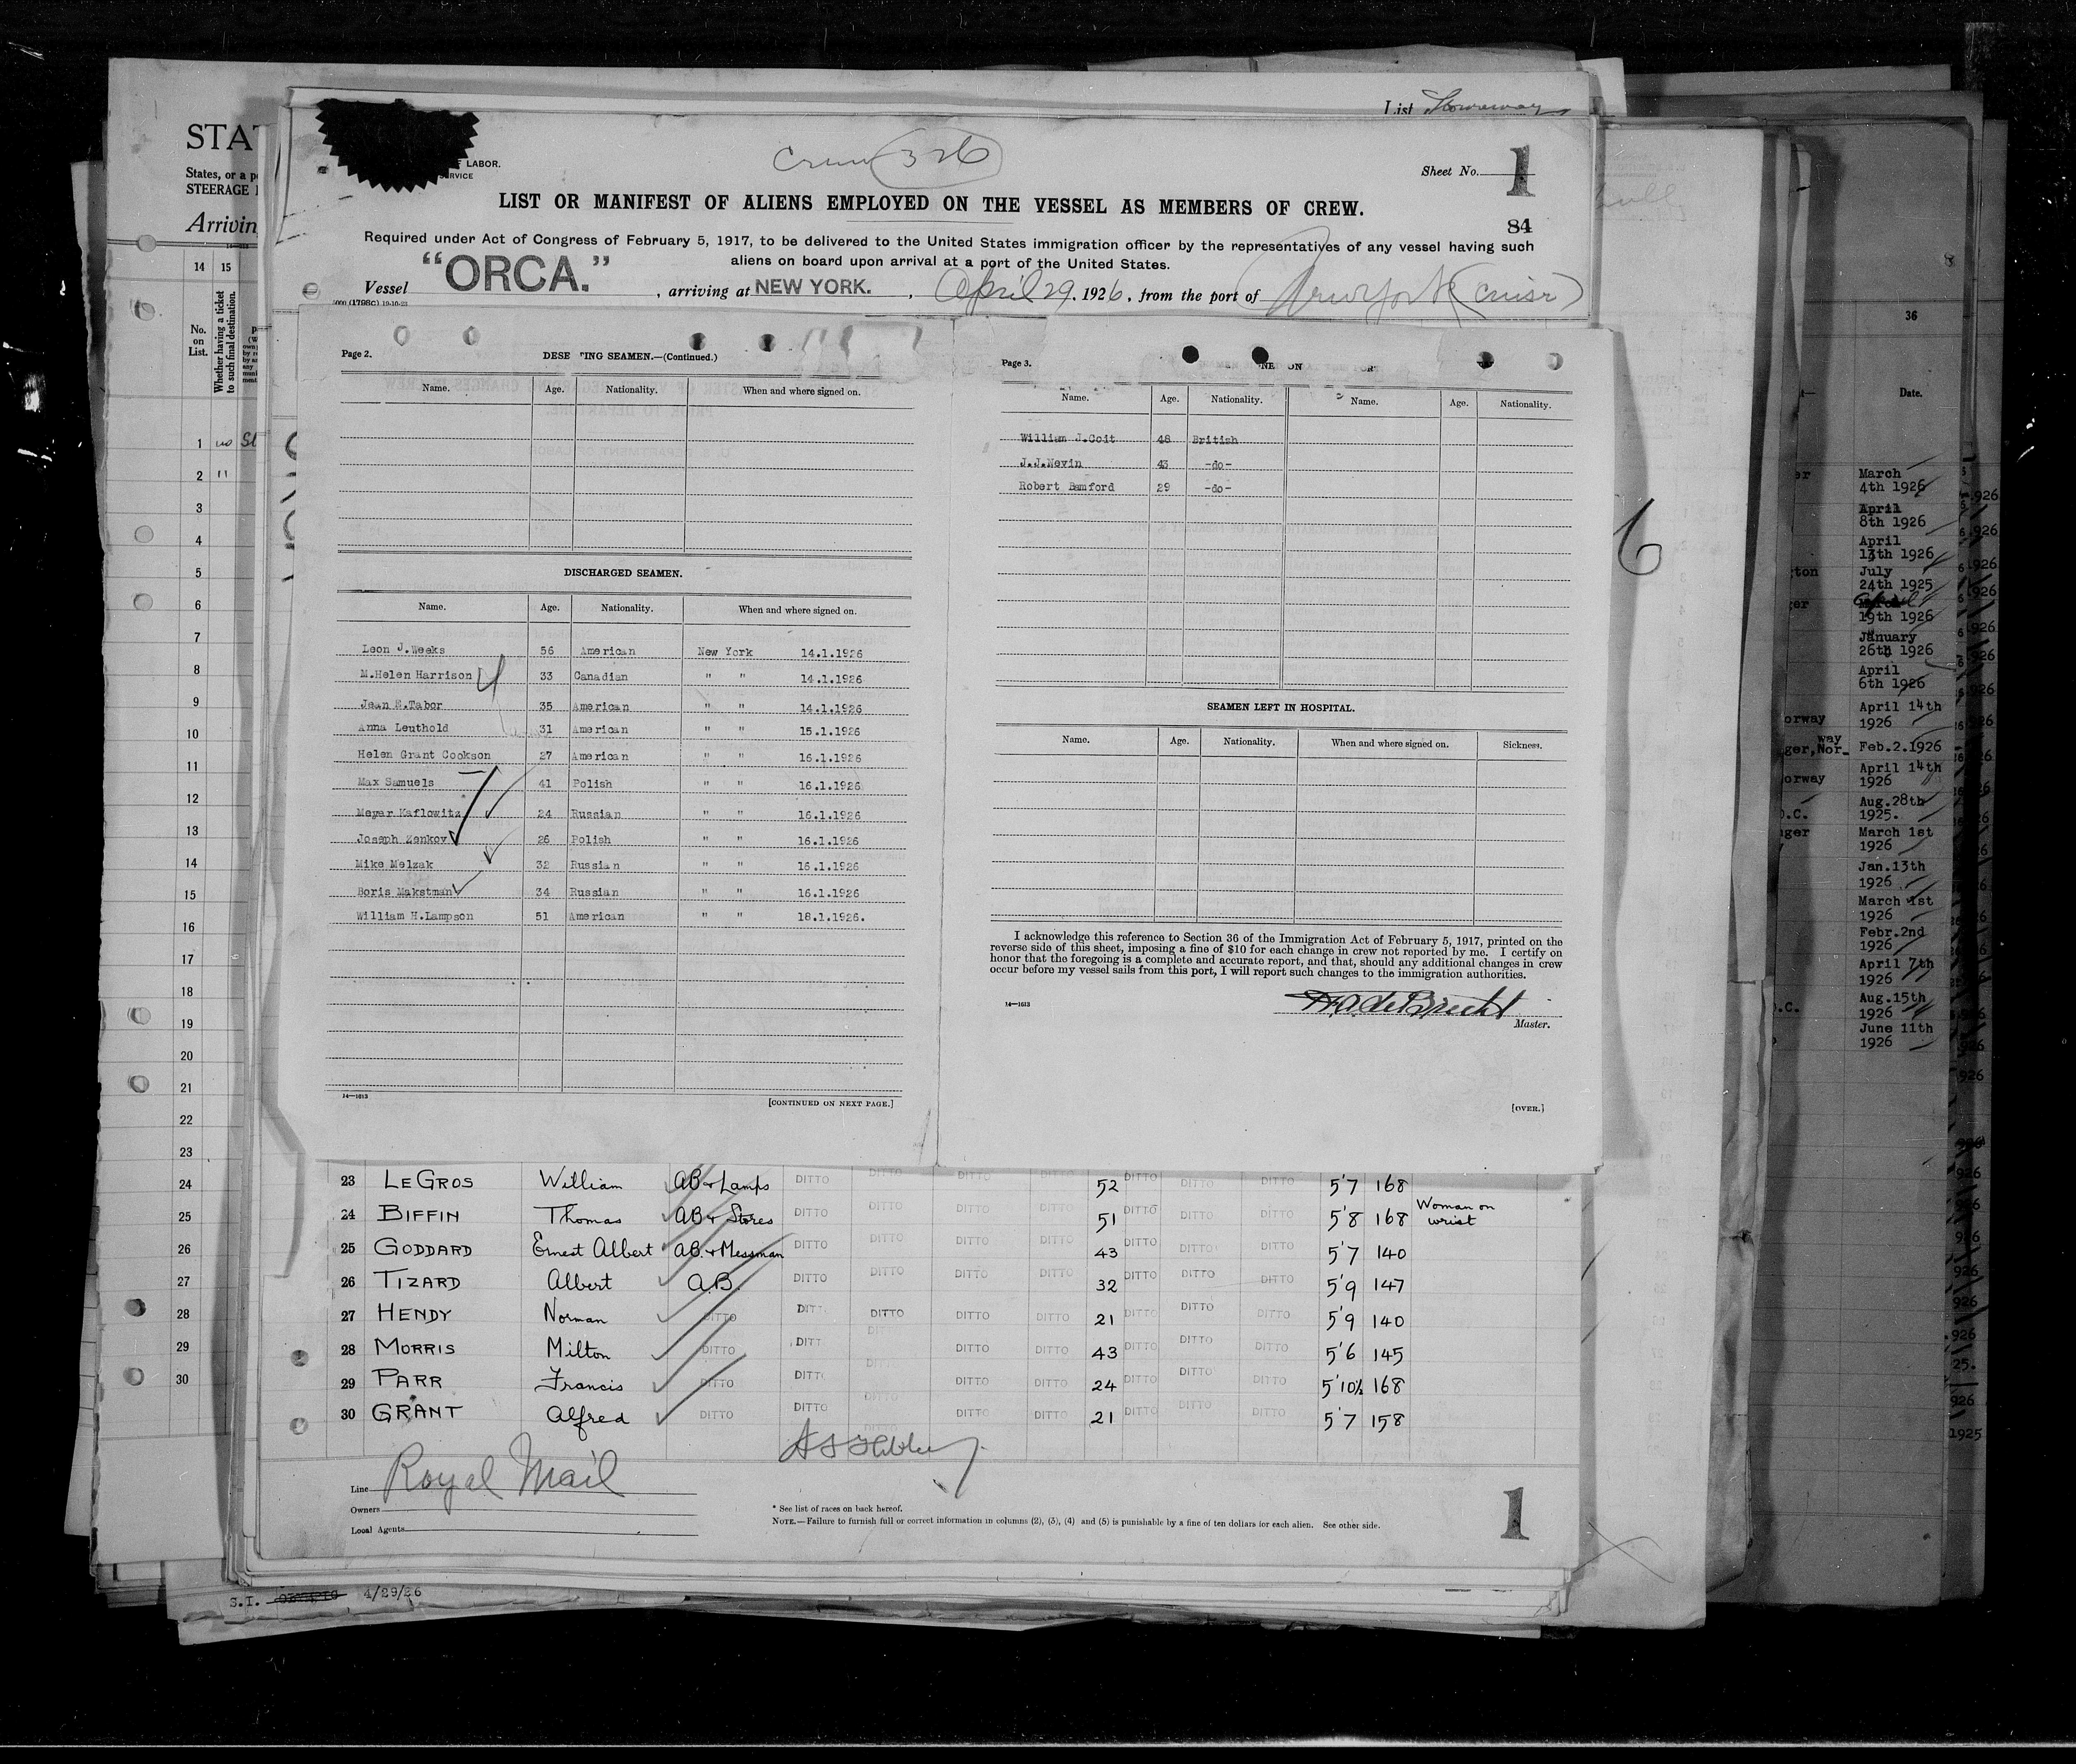 List Stowaway
STAT
LABOR.
SERVICE
Crew 326
Sheet No. 1
States, or a
STEERAGE
LIST OR MANIFEST OF ALIENS EMPLOYED ON THE VESSEL AS MEMBERS OF CREW.
84
Arriving
Required under Act of Congress of February 5, 1917, to be delivered to the United States immigration officer by the representatives of any vessel having such
aliens on board upon arrival at a port of the United States.
Vessel "ORCA.", arriving at NEW YORK., April 29, 1926, from the port of New York (cruise)
14 15
No. on List.
Whether having a ticket to such final destination.
36
Date.
Page 2.
DESE TING SEAMEN.—(Continued.)
Name. Age. Nationality. When and where signed on.
DISCHARGED SEAMEN.
Name. Age. Nationality. When and where signed on.
Leon J.Weeks 56 American New York 14.1.1926
M.Helen Harrison 33 Canadian " " 14.1.1926
Jean E.Tabor 35 American " " 14.1.1926
Anna Leuthold 31 American " " 15.1.1926
Helen Grant Cookson 27 American " " 16.1.1926
Max Samuels 41 Polish " " 16.1.1926
Meyer Kaflowitz 24 Russian " " 16.1.1926
Joseph Zenkov 26 Polish " " 16.1.1926
Mike Melzak 32 Russian " " 16.1.1926
Boris Makstman 34 Russian " " 16.1.1926
William H.Lampson 51 American " " 18.1.1926.
14—1613
[CONTINUED ON NEXT PAGE.]
Page 3.
NE ON
Name. Age. Nationality. Name. Age. Nationality.
William J.Coit 48 British
J.J.Nevin 43 -do-
Robert Bamford 29 -do-
SEAMEN LEFT IN HOSPITAL.
Name. Age. Nationality. When and where signed on. Sickness.
I acknowledge this reference to Section 36 of the Immigration Act of February 5, 1917, printed on the
reverse side of this sheet, imposing a fine of $10 for each change in crew not reported by me. I certify on
honor that the foregoing is a complete and accurate report, and that, should any additional changes in crew
occur before my vessel sails from this port, I will report such changes to the immigration authorities.
14—1613
Master.
[OVER.]
6
1 no
2 "
3
4
5
6
7
8
9
10
11
12
13
14
15
16
17
18
19
20
21
22
23
24
25
26
27
28
29
30
March
4th 1926
April
8th 1926
April
13th 1926
July
24th 1925
April
19th 1926
January
26th 1926
April
6th 1926
April 14th
1926
Feb.2.1926
April 14th
1926
Aug.28th
1925.
March 1st
1926
Jan.13th
1926
March 1st
1926
Febr.2nd
1926
April 7th
1926
Aug.15th
1926
June 11th
1926
23 LEGROS William AB & Lamps DITTO DITTO DITTO DITTO 52 DITTO DITTO DITTO 5'7 168
24 BIFFIN Thomas AB & Stores DITTO DITTO DITTO DITTO 51 DITTO DITTO DITTO 5'8 168 Woman on wrist
25 GODDARD Ernest Albert AB. & Messman DITTO DITTO DITTO DITTO 43 DITTO DITTO DITTO 5'7 140
26 TIZARD Albert A.B. DITTO DITTO DITTO DITTO 32 DITTO DITTO DITTO 5'9 147
27 HENDY Norman DITTO DITTO DITTO DITTO DITTO 21 DITTO DITTO DITTO 5'9 140
28 MORRIS Milton DITTO DITT DIT DITTO DITTO 43 DITTO DITTO DITTO 5'6 145
29 PARR Francis DITTO DITTO DITTO DITTO DITTO 24 DITTO DITTO DITTO 5'10½ 168
30 GRANT Alfred DITTO DITTO DITTO DITTO DITTO 21 DITTO DITTO DITTO 5'7 158
Line Royal Mail
Owners
Local Agents
* See list of races on back hereof.
NOTE.—Failure to furnish full or correct information in columns (2), (3), (4) and (5) is punishable by a fine of ten dollars for each alien. See other side.
1
S.I. 4/29/26